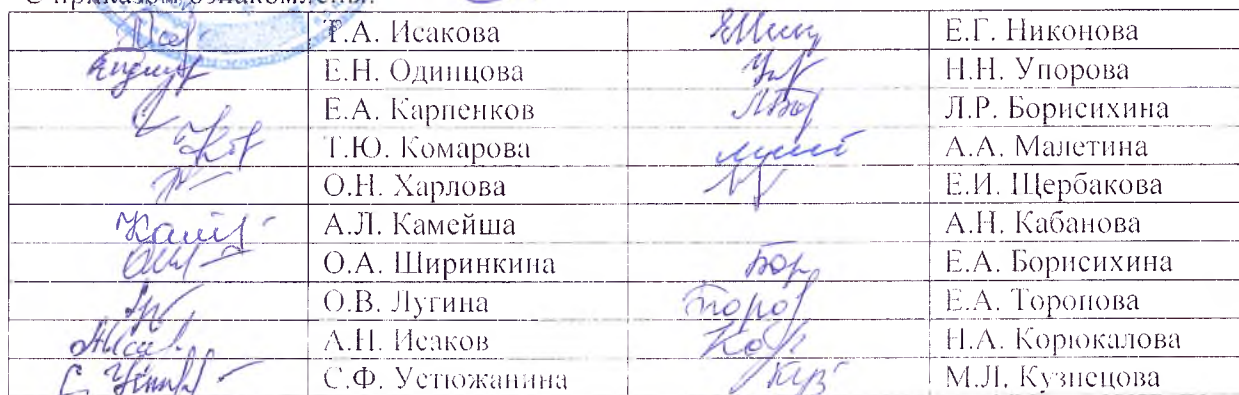 С приказом ознакомлены:
Т.А. Исакова Е.Г. Никонова
Е.Н. Одинцова Н.Н. Упорова
Е.А. Карпенков Л.Р. Борисихина
Т.Ю. Комарова А.А. Малетина
О.Н. Харлова Е.И. Щербакова
А.Л. Камейша А.Н. Кабанова
О.А. Ширинкина Бор Е.А. Борисихина
О.В. Лугина Е.А. Торопова
А.Н. Исаков Н.А. Корюкалова
С.Ф. Устюжанина М.Л. Кузнецова